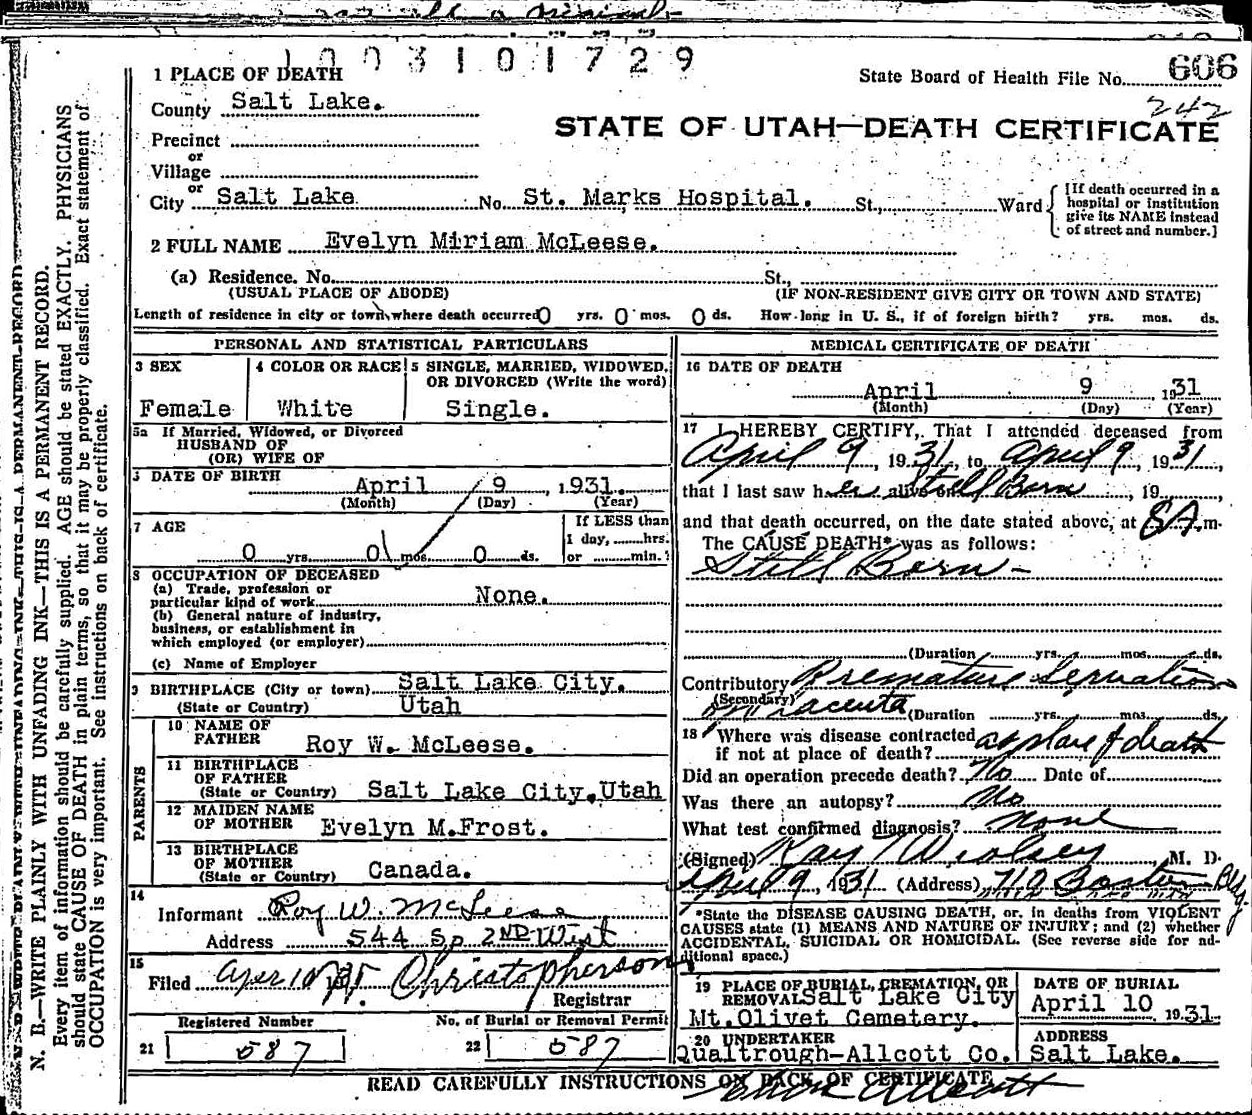 1003101729
State Board of Health File No. 606
242
STATE OF UTAH—DEATH CERTIFICATE
1 PLACE OF DEATH
County Salt Lake.
Precinct
or
Village
or
City Salt Lake No. St. Marks Hospital. St., Ward
[If death occurred in a
hospital or institution
give its NAME instead
of street and number.]
2 FULL NAME Evelyn Miriam McLeese.
(a) Residence. No. St.,
(USUAL PLACE OF ABODE) (IF NON-RESIDENT GIVE CITY OR TOWN AND STATE)
Length of residence in city or town where death occurred 0 yrs. 0 mos. 0 ds. How long in U. S., if of foreign birth? yrs. mos. ds.
PERSONAL AND STATISTICAL PARTICULARS
3 SEX
Female
4 COLOR OR RACE
White
5 SINGLE, MARRIED, WIDOWED,
OR DIVORCED (Write the word)
Single.
5a If Married, Widowed, or Divorced
HUSBAND OF
(OR) WIFE OF
6 DATE OF BIRTH
April 9, 1931.
(Month) (Day) (Year)
7 AGE
0 yrs. 0 mos. 0 ds.
If LESS than
1 day, hrs.
or min.
8 OCCUPATION OF DECEASED
(a) Trade, profession or
particular kind of work None.
(b) General nature of industry,
business, or establishment in
which employed (or employer)
(c) Name of Employer
9 BIRTHPLACE (City or town) Salt Lake City.
(State or Country) Utah
PARENTS
10 NAME OF
FATHER Roy W. McLeese.
11 BIRTHPLACE
OF FATHER
(State or Country) Salt Lake City, Utah
12 MAIDEN NAME
OF MOTHER Evelyn M. Frost.
13 BIRTHPLACE
OF MOTHER
(State or Country) Canada.
14
Informant Roy W. McLeese
Address 544 So 2ND West
15
Filed Apr 10 Christopherson
Registrar
Registered Number
21 587
No. of Burial or Removal Permit
22 587
MEDICAL CERTIFICATE OF DEATH
16 DATE OF DEATH
April 9 1931
(Month) (Day) (Year)
17 I HEREBY CERTIFY, That I attended deceased from
April 9, 1931, to April 9, 1931,
that I last saw her alive on Still Born, 19
and that death occurred, on the date stated above, at 8 A. m.
The CAUSE DEATH* was as follows:
Still Born -
(Duration yrs. mos. ds.
Contributory Premature Seperation
(Secondary) of Placenta (Duration yrs. mos. ds.
18 Where was disease contracted
if not at place of death? at place of death
Did an operation precede death? No Date of
Was there an autopsy? No
What test confirmed diagnosis? None
(Signed) Ray T Woolsey M. D.
April 9, 1931 (Address) 710 Boston Bldg
*State the DISEASE CAUSING DEATH, or, in deaths from VIOLENT
CAUSES state (1) MEANS AND NATURE OF INJURY; and (2) whether
ACCIDENTAL, SUICIDAL OR HOMICIDAL. (See reverse side for ad-
ditional space.)
19 PLACE OF BURIAL, CREMATION, OR
REMOVAL Salt Lake City
Mt. Olivet Cemetery.
DATE OF BURIAL
April 10 1931.
20 UNDERTAKER
Qualtrough-Allcott Co.
ADDRESS
Salt Lake.
READ CAREFULLY INSTRUCTIONS ON BACK OF CERTIFICATE
Allcott
N. B.—WRITE PLAINLY WITH UNFADING INK—THIS IS A PERMANENT RECORD.
Every item of information should be carefully supplied. AGE should be stated EXACTLY. PHYSICIANS
should state CAUSE OF DEATH in plain terms, so that it may be properly classified. Exact statement of
OCCUPATION is very important. See instructions on back of certificate.